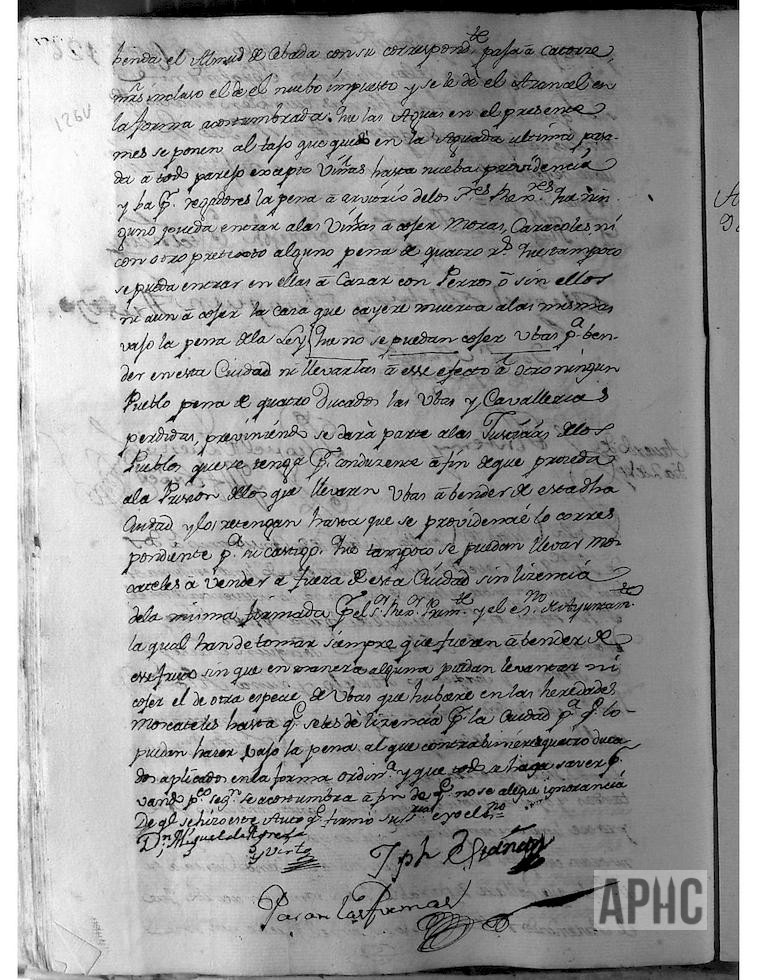 benda el Almud de Cebada con su correspond.te paja à Catorze
mrs incluso el de el nuebo impuesto y se le dè el Arancel en
la forma acostumbrada. Que las Aguas en el presente
mes se ponen al taso que quedò en la Aguada ultima pasa-
da à todo parejo excepto Viñas hasta nueba providencia
y ba p.r regadores la pena à arvitrio delos S.res Rex.res Que nin
guno pueda entrar alas Viñas à cojer Moras, Caracoles ni
con otro pretexto alguno pena de quatro r.s Que tampoco
se pueda entrar en ellas à Cazar con Perros ò sin ellos
ni aun à cojer la caza que cayere muerta alas mismas
vajo la pena dela Ley Que no se puedan cojer Ubas p.a ben-
der en esta Ciudad ni llevarlas à esse efecto à otro ningun
Pueblo pena de quatro Ducados las Ubas y Cavallerias
perdidas, previniendo se darà parte alas Justicias delos
Pueblos que se tenga p.r conduzente à fin de que proceda
ala Prision delos que llevaren Ubas à bender de esta dha
Ciudad y los retengan hasta que se providencie lo corres
pondiente p.a su castigo. Que tampoco se puedan llevar mos-
cateles à vender à fuera de esta Ciudad sin lizencia
dela misma firmada p.r el S.r Rex.r Prim.te y el es.no de Ayuntam.to
la qual han de tomar siempre que fueren à bender de
esse fruto sin que en manera alguna puedan levantar ni
cojer el de otra especie de Ubas que hubiere en las heredades
Moscateles hasta q.e seles dè lizencia p.r la Ciudad p.a q.e lo
puedan hazer vajo la pena al que contrabiniere quatro duca
dos aplicados en la forma ordin.a y que todo se haga saver p.r
vando p.co seg.n se acostumbra à fin de q.e no se alegue ignorancia
De q.e se hizo este Auto q.e firmò su S.ria e yo el es.no
D.n Miguel de Agreda
y Virto
Jph
Pasan las firmas
APHC